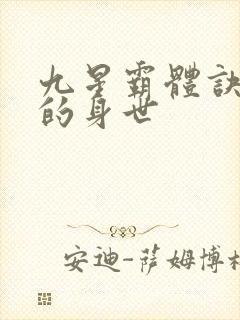 九星霸體訣
的身世
安迪-萨姆博